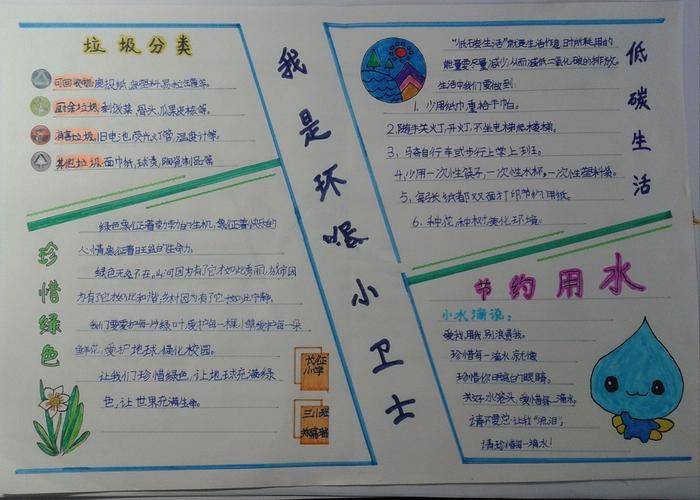 垃圾分类
可回收物,废报纸,
厨余垃圾,剩饭菜,骨头,瓜果皮核等。
有害垃圾,旧电池,荧光灯管,温度计等。
其他垃圾,面巾纸,球类,陶瓷制品等
珍惜绿色
绿色象征着勃勃的生机,象征着快乐的
心情,象征着旺盛的生命力。
绿色无处不在。山河因为有了它才如此秀丽,城市因
为有了它才如此和谐,乡村因为有了它才如此宁静。
我们要爱护每一片绿叶,爱护每一棵小草,爱护每一朵
鲜花,爱护地球,绿化校园。
让我们珍惜绿色,让地球充满绿
色,让世界充满生命。
长征
小学
三八班
我是环保小卫士
低碳生活
"低碳生活"就是生活作息时所耗用的
能量要尽量减少,从而减低二氧化碳的排放。
生活中我们要做到:
1、少用纸巾,重拾手帕。
2、随手关灯,开灯,不坐电梯爬楼梯。
3、骑自行车或步行上学上班。
4、少用一次性筷子,一次性水杯,一次性塑料袋。
5、每张纸都双面打印节约用纸。
6、种花种树美化环境
节约用水
小水滴说:
爱我,用我,别浪费我。
珍惜每一滴水,就像
珍惜你明亮的眼睛。
关好水龙头,爱惜每一滴水。
请不要它让我"流泪",
请珍惜每一滴水!